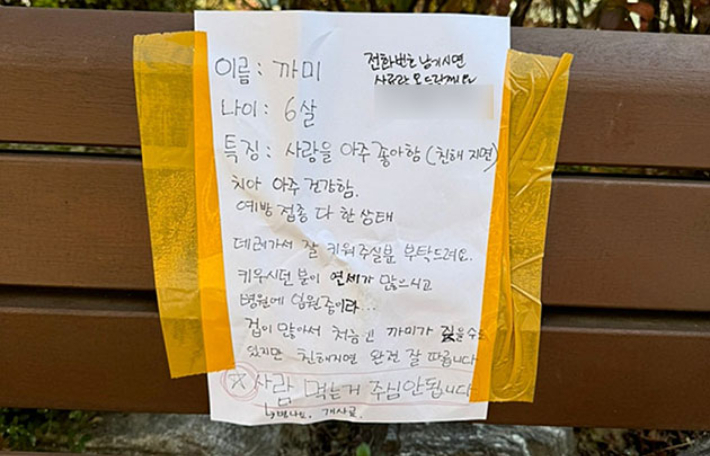 이름: 까미
전화번호 남기시면
사례라도 드릴께요
나이: 6살
특징: 사람을 아주 좋아함 (친해 지면)
치아 아주 건강함.
예방 접종 다 한 상태
데려가서 잘 키워주실분 부탁드려요.
키우시던 분이 연세가 많으시고
병원에 입원중이라...
겁이 많아서 처음엔 까미가 짖을수도
있지만 친해지면 완전 잘 따릅니다
☆사람 먹는거 주심안됩니다
개사료.